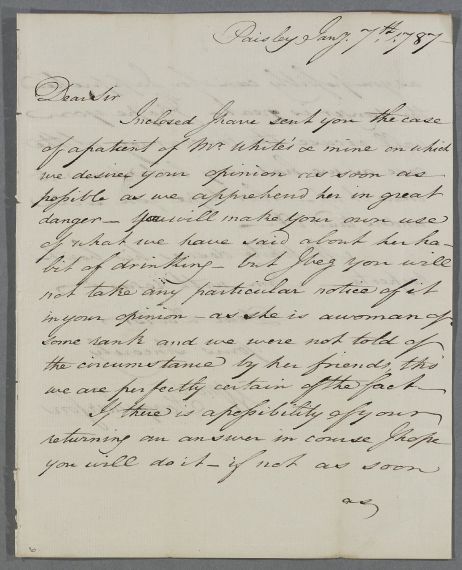 Paisley Jany. 7th. 1787
Dear Sir
Inclosed I have sent you the case
of a patient of Mr. White's & mine on which
we desire your opinion as soon as
possible as we apprehend her in great
danger - You will make your own use
of what we have said about her ha-
bit of drinking - but I beg you will
not take any particular notice of it
in your opinion - as she is a woman of
some rank and we were not told of
the circumstance by her friends, tho
we are perfectly certain of the fact -
If there is a possibility of your
returning an answer in course I hope
you will do it - if not as soon
as